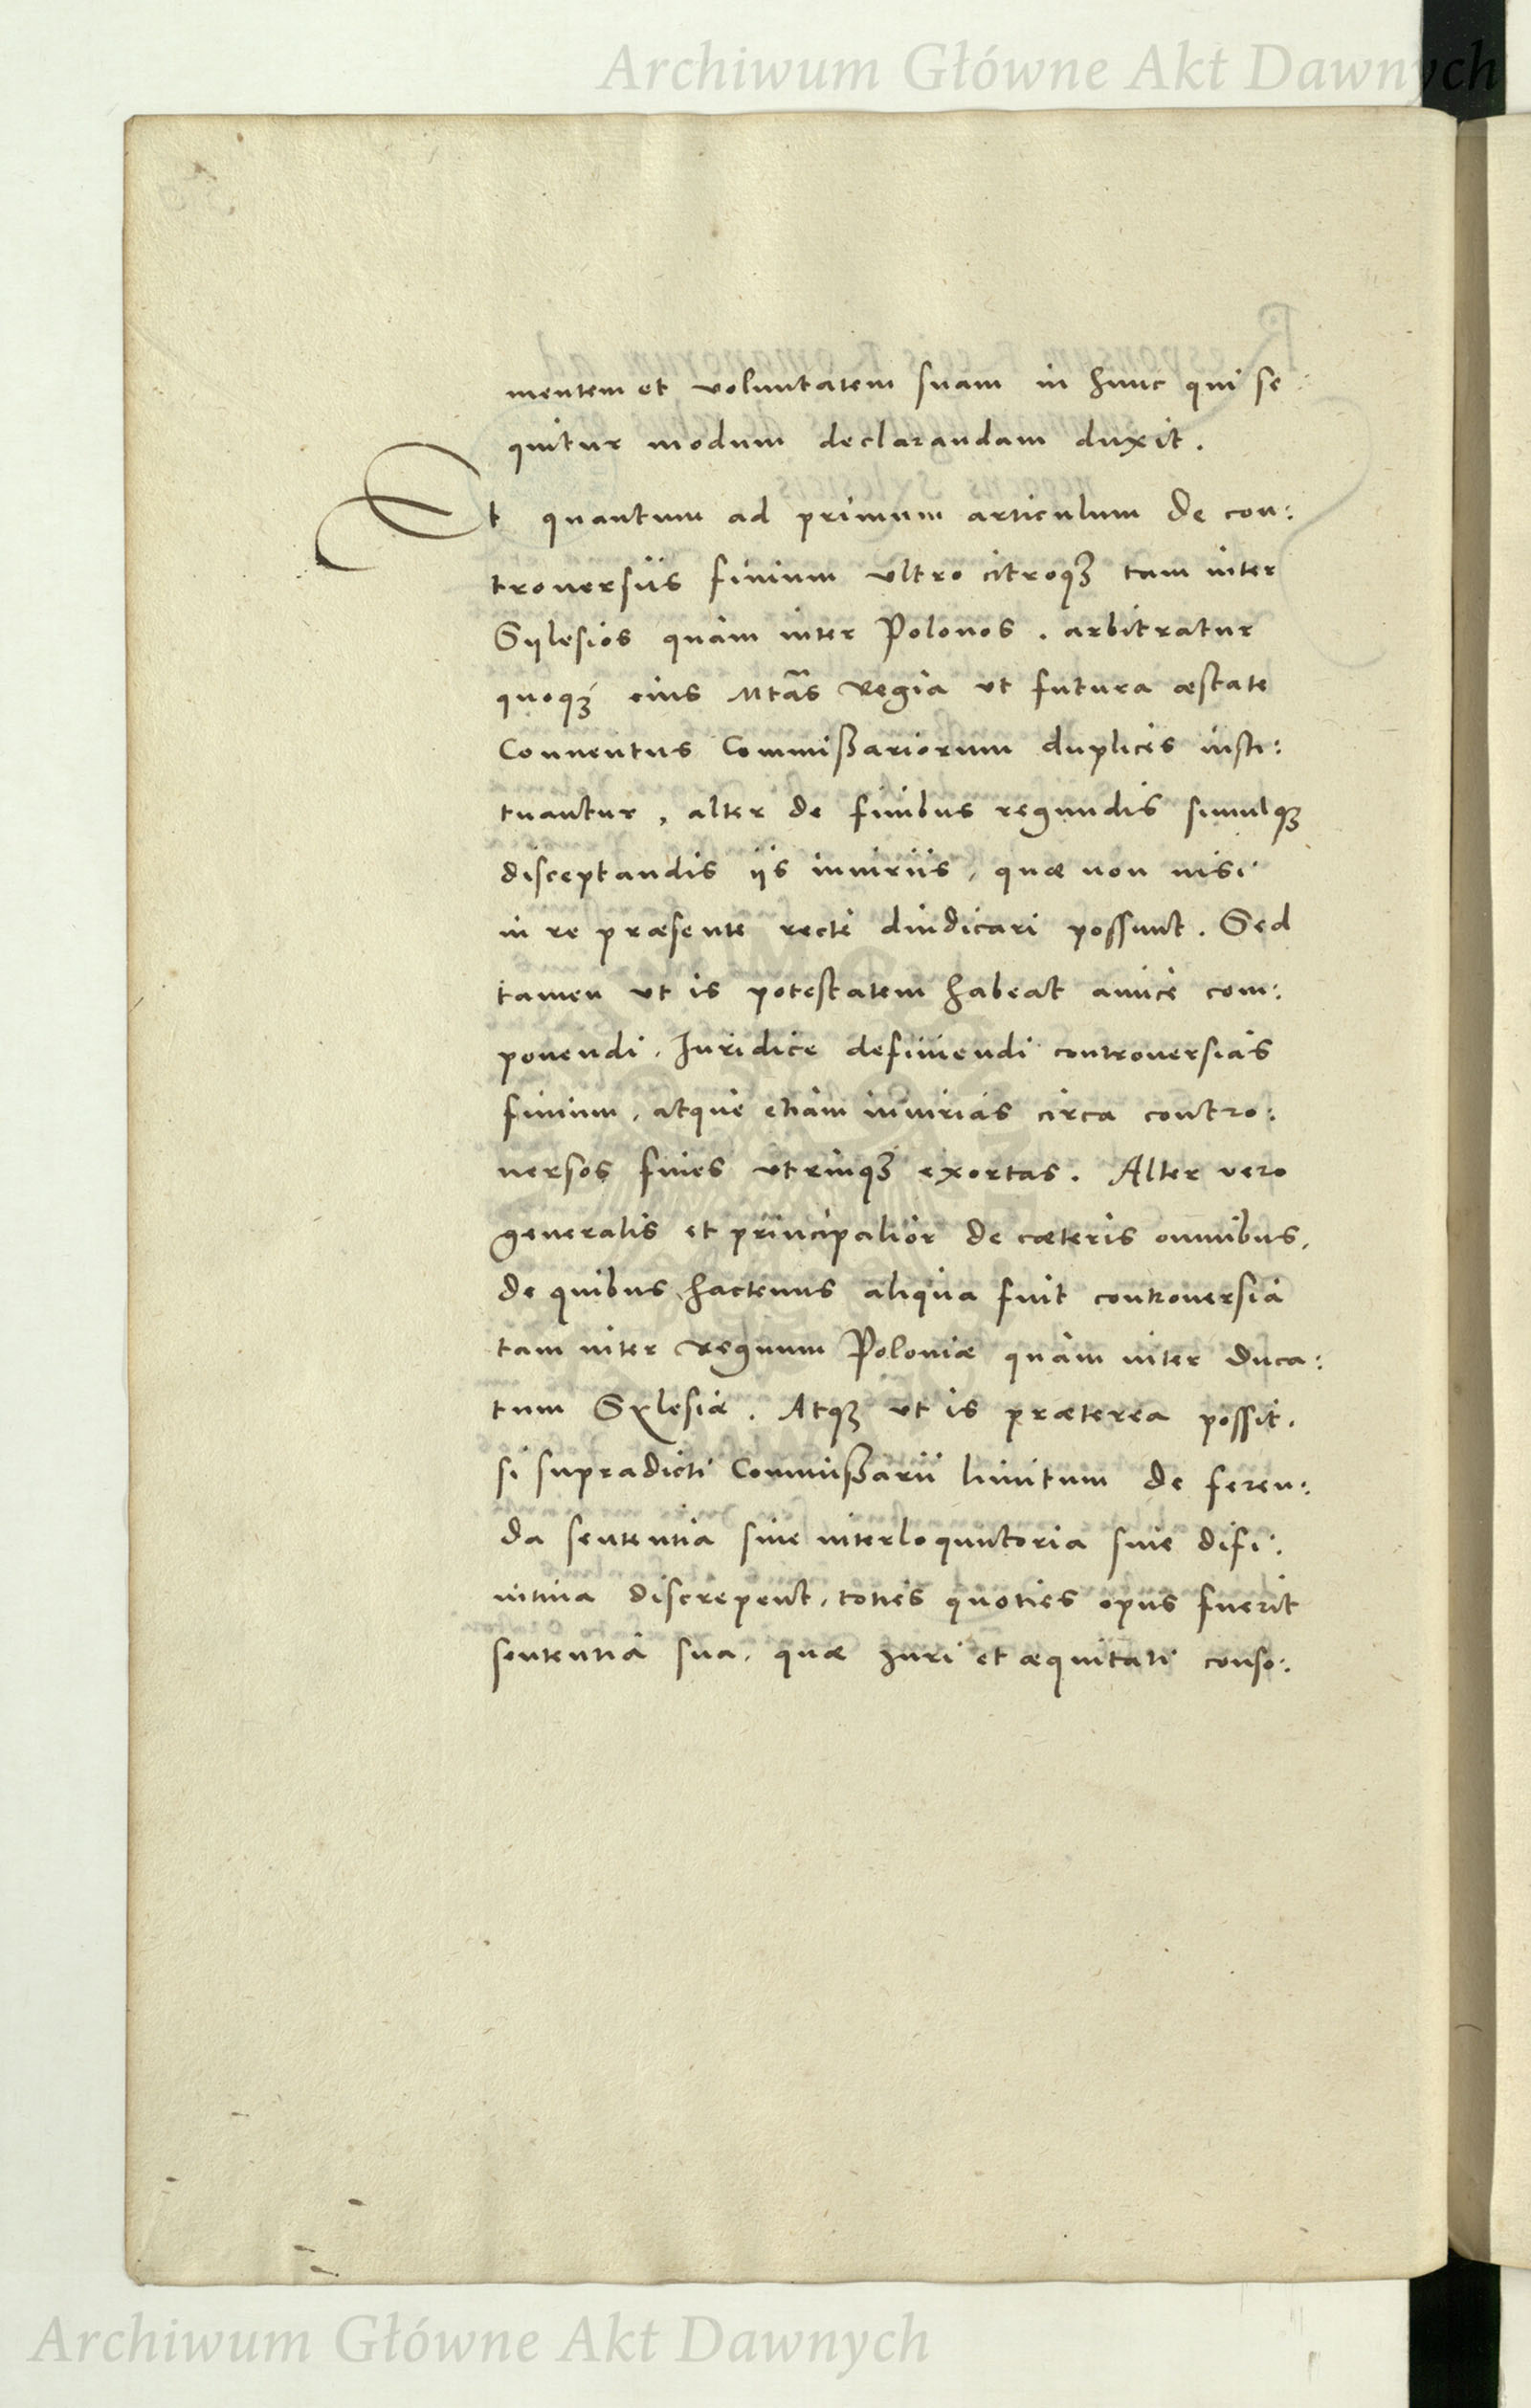 Archiwum Główne Akt Dawnych
mentem et voluntatem suam in hunc qui se:
quitur modum declarandam duxit.
Et quantum ad primum articulum de con:
trouersiis finium vltro citroqꝫ tam inter
Sÿlesios quàm inter Polonos. arbitratur
quoqꝫ eius Mtãs Regia vt futura æstate
Conuentus Commißariorum duplices insti:
tuantur, alter de finibus regundis simulqꝫ
disceptandis ÿs iniuriis, quæ non nisi
in re præsente rectè diudicari possunt. Sed
tamen vt is potestatem habeat amicè com:
ponendi, Juridice definiendi controuersias
finium, atque etiam iniurias circa contro:
uersos fines vtrinqꝫ exortas. Alter vero
generalis et principalior de cæteris omnibus,
de quibus hactenus aliqua fuit controuersia
tam inter Regnum Poloniæ quàm inter Duca:
tum Sylesiæ. Atqꝫ vt is præterea possit,
si supradicti Commißarii limitum de feren:
da sententia siue interloquutoria siue difi:
nitiua discrepent, toties quoties opus fuerit
sententia sua, quæ Juri et æquitati conso:
Archiwum Główne Akt Dawnych